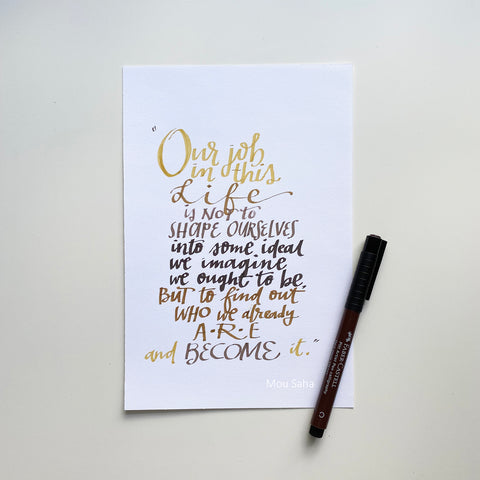 "Our job
in this
Life
is NOT to
SHAPE OURSELVES
into some ideal
we imagine
we ought to be.
BUT to find out
WHO we already
A·R·E
and BECOME it."
Mou Saha
FABER-CASTELL